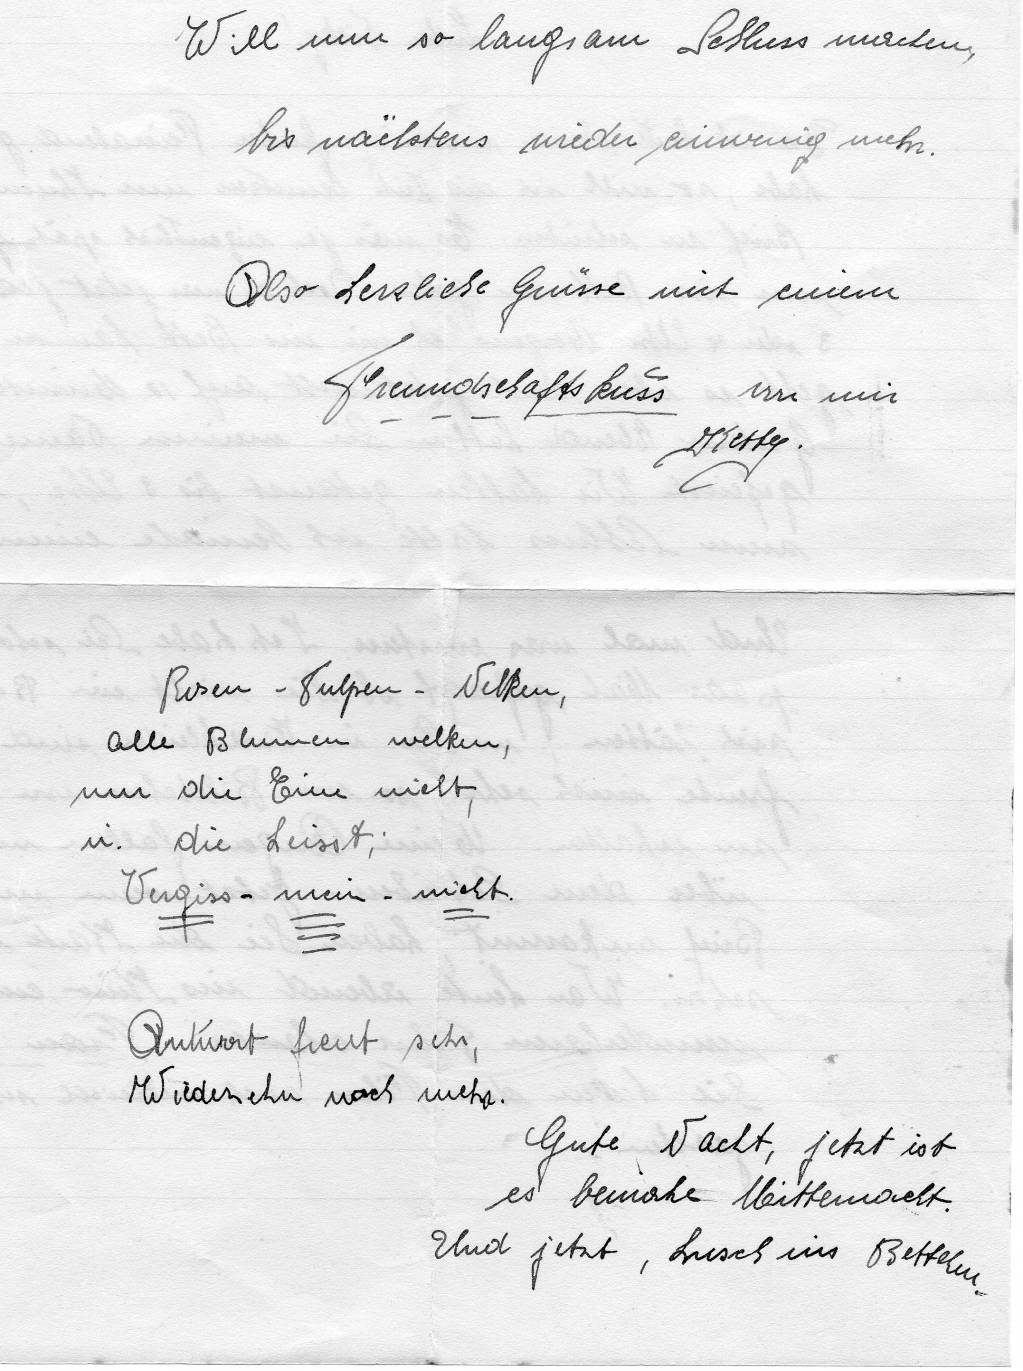 Will nun so langsam Schluss machen,
bis nächstens wieder einwenig mehr.
Also herzliche Grüsse mit einem
Freundschaftskuss von mir
Ketty.
Rosen - Tulpen - Nelken,
alle Blumen welken,
nur die Eine nicht,
u. die heisst;
Vergiss - mein - nicht.
Antwort freut sehr,
Wiedersehn noch mehr.
Gute Nacht, jetzt ist
es beinahe Mitternacht.
Und jetzt, husch ins Bettchen.